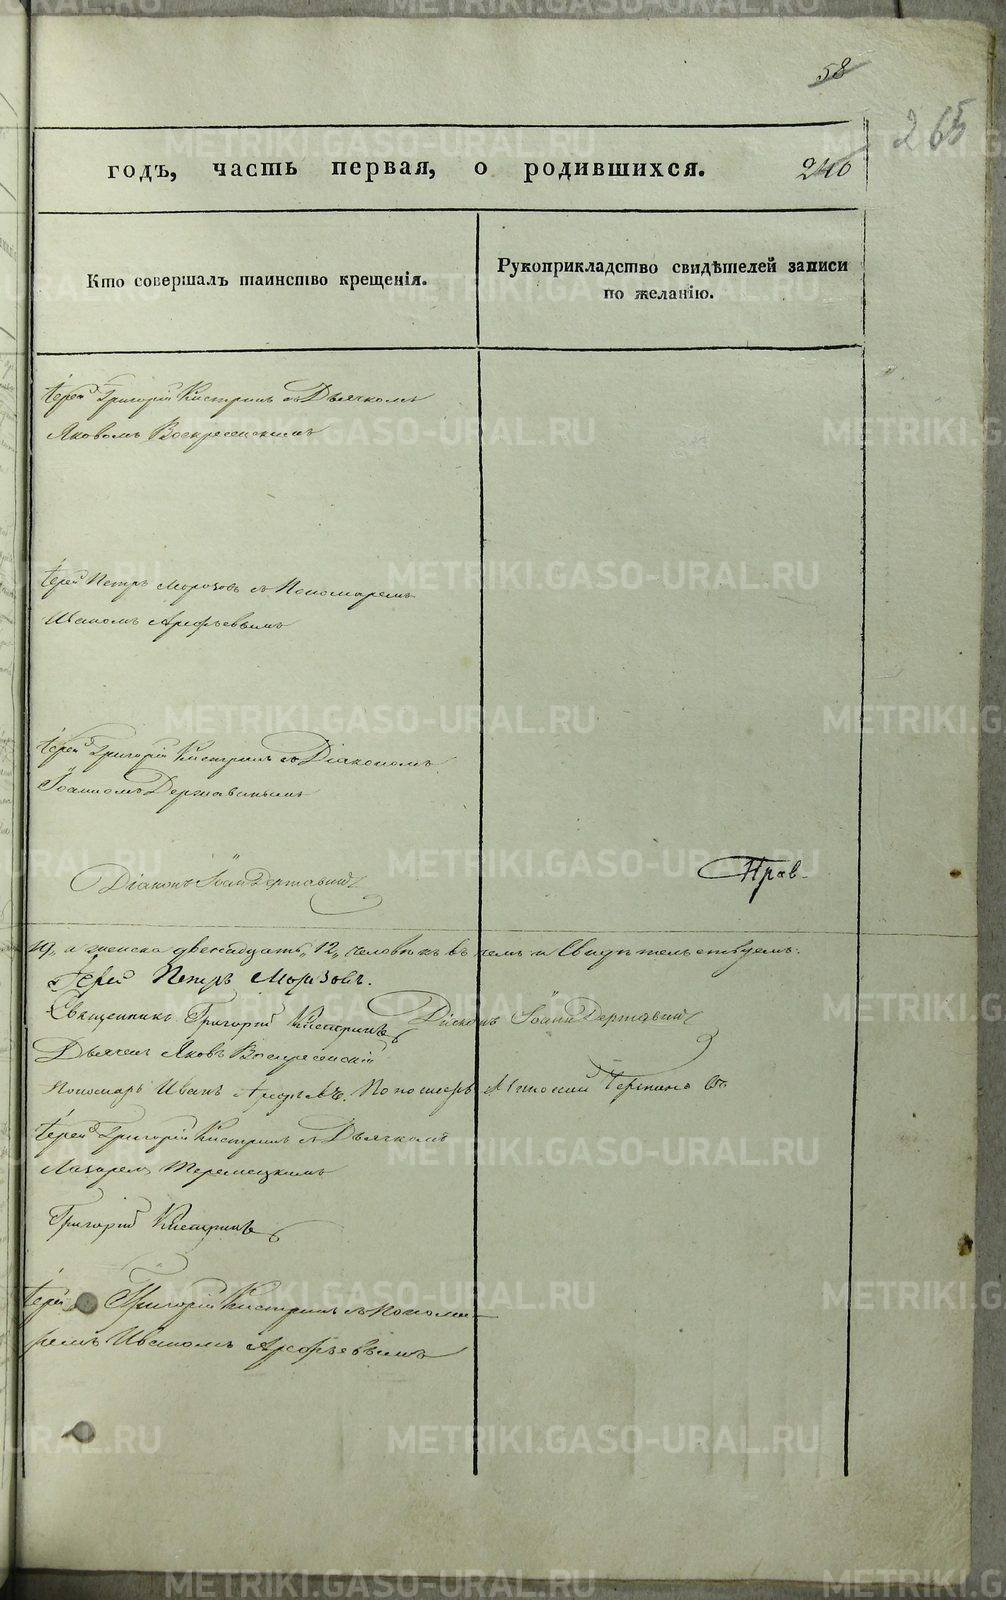 58
265
годъ, часть первая, о родившихся.
240
Кто совершалъ таинство крещенія.
Рукоприкладство свидѣтелей записи
по желанію.
Іерей Григорій Кистринъ съ Дьячкомъ
Яковомъ Воскресенскимъ
Іерей Петръ Морозовъ съ Пономаремъ
Иваномъ Арефьевымъ
Іерей Григорій Кистринъ съ Діакономъ
Іоанномъ Державинымъ
Діаконъ Іоан Державин
Прав-
и женска двенадцать „12„ человекъ въ чемъ и свидетельствуемъ:
Іерей Петръ Морозовъ.
Священникъ Григорій Кистринъ Діаконъ Іоанн Державин
Дьячекъ Яковъ Воскресенскій
Пономарь Иванъ Арефьевъ. Пономарь
Іерей Григорій Кистринъ съ Дьячкомъ
Лазарем
Григорій Кистринъ
Іерей Григорій Кистринъ съ Понома-
ремъ Иваномъ Арефьевымъ
METRIKI.GASO-URAL.RU